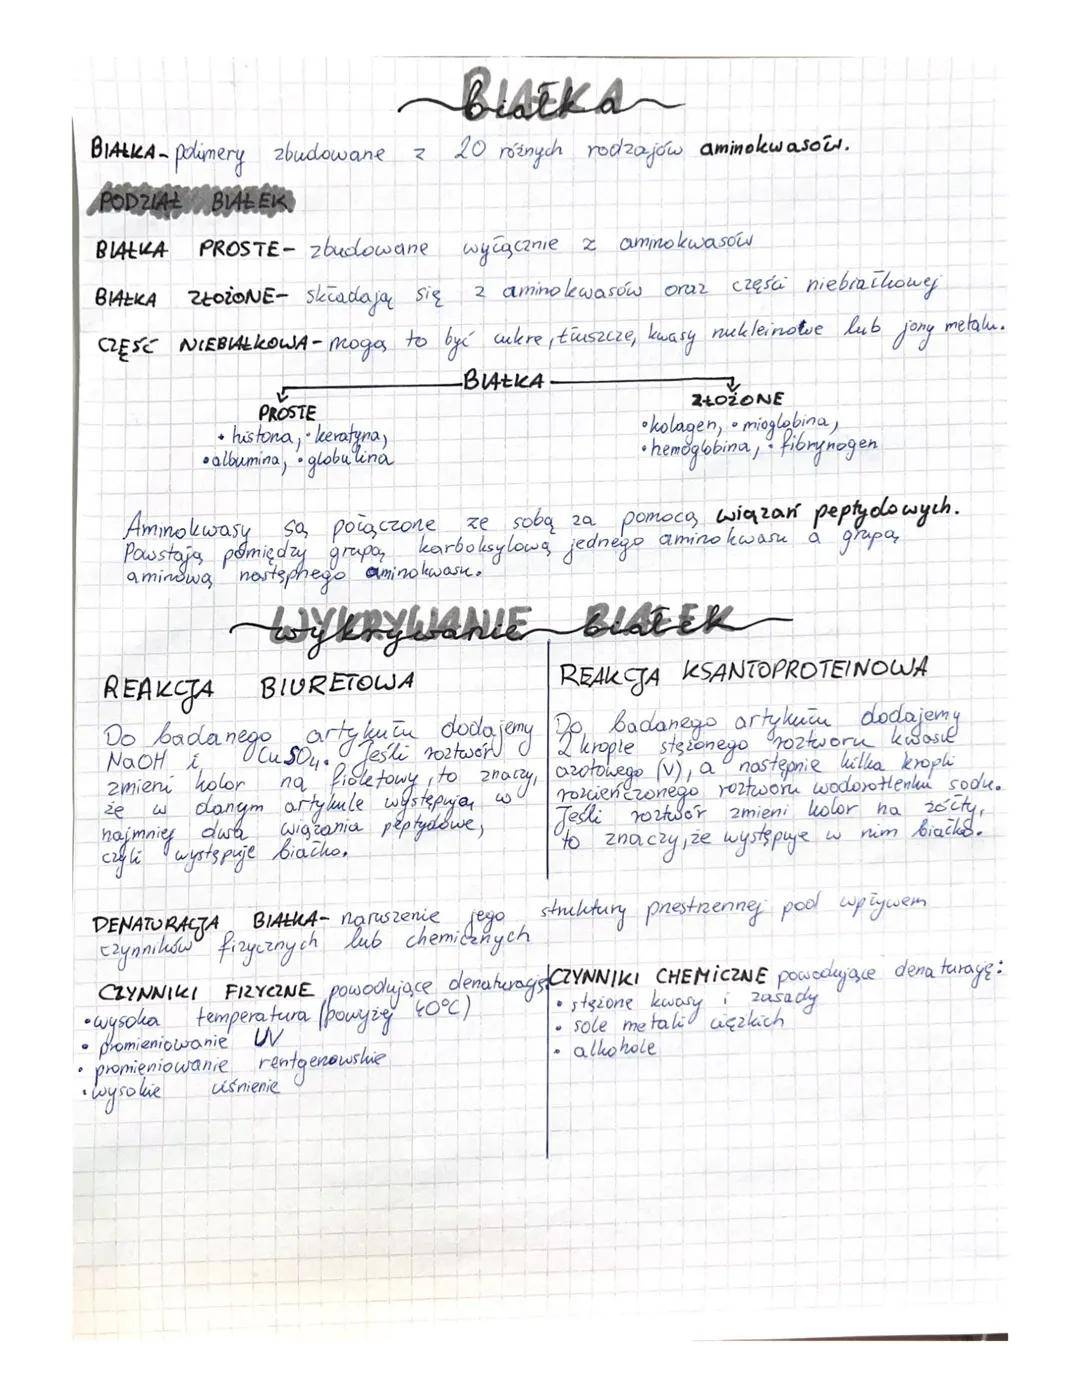 BIAŁKA
białka
BIAŁKA - polimery zbudowane z 20 różnych rodzajów aminokwasów.
PODZIAŁ BIAŁEK
BIAŁKA PROSTE - zbudowane wyłącznie z aminokwasów
BIAŁKA ZŁOŻONE - składają się z aminokwasów oraz części niebiałkowej
CZĘŚĆ NIEBIAŁKOWA - mogą to być cukre, tłuszcze, kwasy nukleinowe lub jony metalu.
BIAŁKA
PROSTE
• histona, • keratyna,
• albumina, • globulina
ZŁOŻONE
• kolagen, • mioglobina,
• hemoglobina, • fibrynogen
Aminokwasy są połączone ze sobą za pomocą wiązań peptydowych.
Powstają pomiędzy grupą karboksylową jednego aminokwasu a grupą
aminową następnego aminokwasu.
WYKRYWANIE BIAŁEK
wykrywanie białek
REAKCJA BIURETOWA
Do badanego artykułu dodajemy
NaOH i CuSO4. Jeśli roztwór
zmieni kolor na fioletowy, to znaczy,
że w danym artykule występują w
najmniej dwa wiązania peptydowe,
czyli występuje białko.
REAKCJA KSANTOPROTEINOWA
Do badanego artykułu dodajemy
2 krople stężonego roztworu kwasu
azotowego (V), a następnie kilka kropli
rozcieńczonego roztworu wodorotlenku sodu.
Jeśli roztwór zmieni kolor na żółty,
to znaczy, że występuje w nim białko.
DENATURACJA BIAŁKA - naruszenie jego struktury przestrzennej pod wpływem
czynników fizycznych lub chemicznych
CZYNNIKI FIZYCZNE powodujące denaturację
• wysoka temperatura (powyżej 40°C)
• promieniowanie UV
• promieniowanie rentgenowskie
• wysokie ciśnienie
CZYNNIKI CHEMICZNE powodujące denaturację:
• stężone kwasy i zasady
• sole metali ciężkich
• alkohole